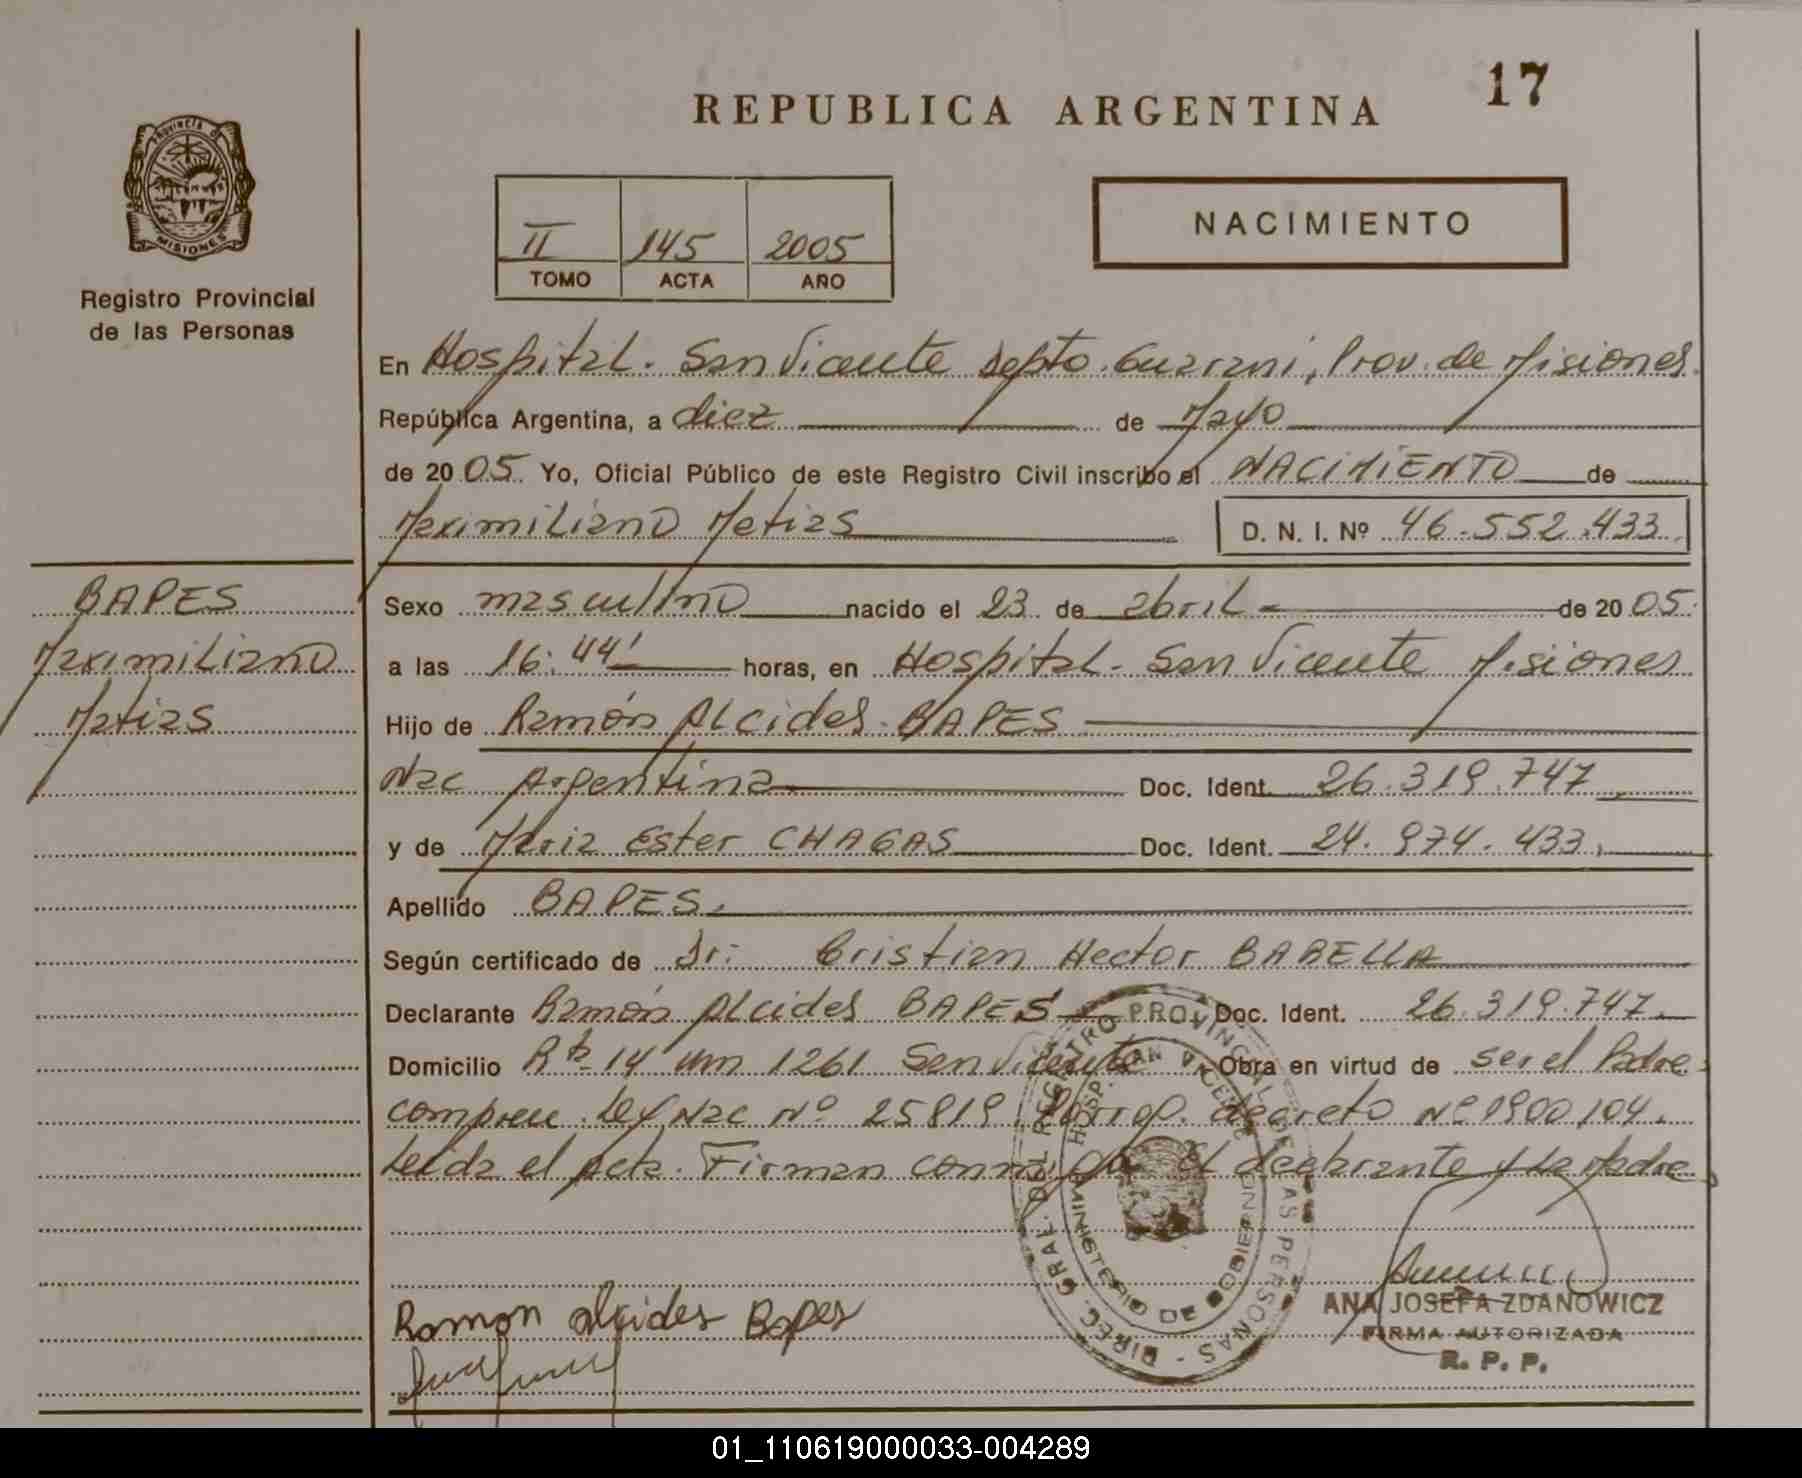 17
REPUBLICA ARGENTINA
PROVINCIA DE
MISIONES
Registro Provincial
de las Personas
II 145 2005
TOMO ACTA AÑO
NACIMIENTO
En Hospital. San Vicente Depto. Guarani, Prov. de Misiones.
República Argentina, a diez de Mayo
de 2005. Yo, Oficial Público de este Registro Civil inscribo el NACIMIENTO de
Maximiliano Matias D. N. I. Nº 46.552.433.
BAPES
Maximiliano
Matias
Sexo masculino nacido el 23 de abril - de 2005.
a las 16:44' horas, en Hospital. San Vicente Misiones
Hijo de Ramón Alcides BAPES
Nac Argentina Doc. Ident. 26.319.747
y de Maria Ester CHAGAS Doc. Ident. 24.974.433.
Apellido BAPES.
Según certificado de Dr: Cristian Hector BABELLA
Declarante Ramón Alcides BAPES Doc. Ident. 26.319.747.
Domicilio Rta 14 Km 1261 San Vicente Obra en virtud de ser el Padre
compreu. Ley Nac Nº 25819 Prorrog. decreto Nº 1900/04.
Leida el Acta. Firman conmigo el declarante y la Madre
DIREC. GRAL. DEL REGISTRO PROVINCIAL DE LAS PERSONAS -
HOSP. SAN VICENTE
MINISTERIO DE GOBIERNO
Ramon alcides Bapes
ANA JOSEFA ZDANOWICZ
FIRMA AUTORIZADA
R. P. P.
01_110619000033-004289